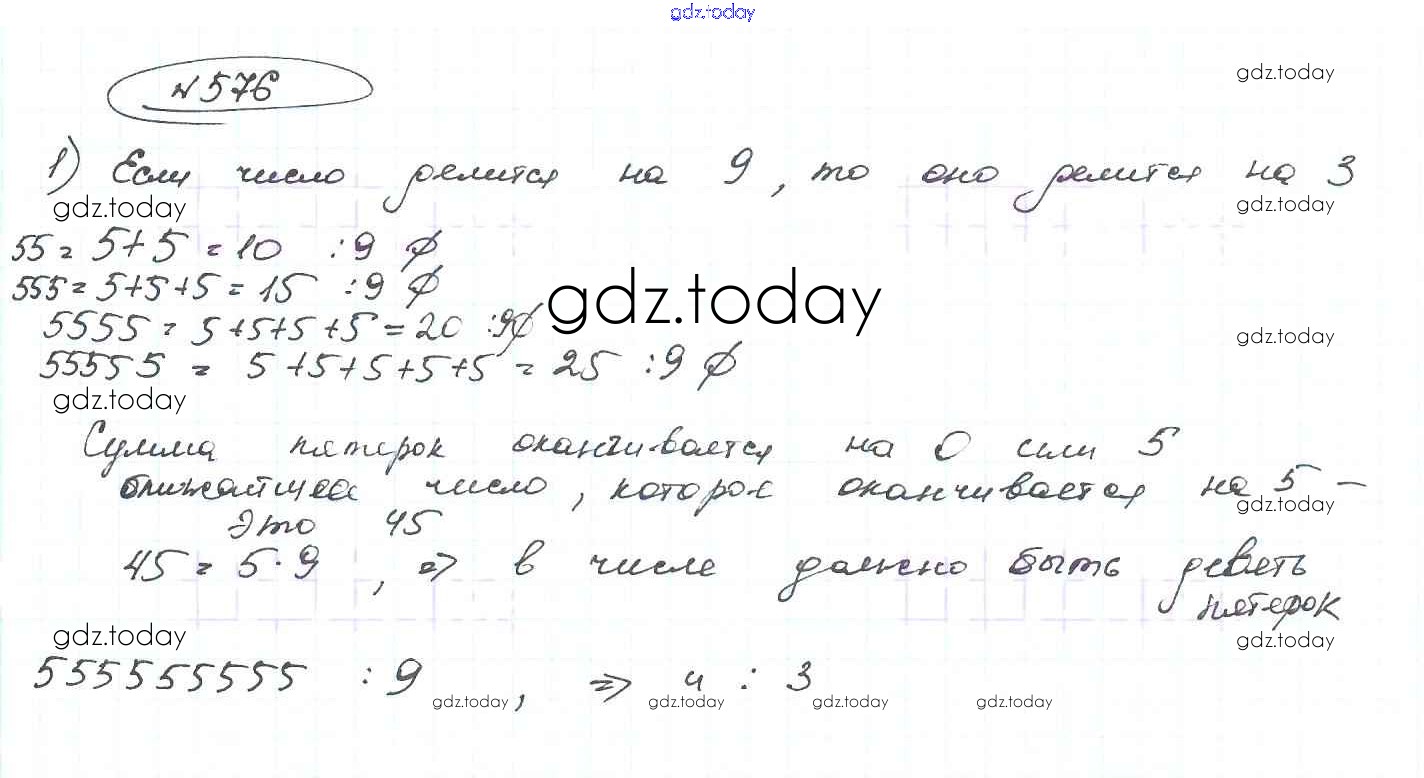 gdz.today
№576
gdz.today
1) Если число делится на 9, то оно делится на 3
gdz.today
gdz.today
55 = 5+5 = 10 :9 ∅
555 = 5+5+5 = 15 :9 ∅
gdz.today
5555 = 5+5+5+5 = 20 :9 ∅
gdz.today
55555 = 5+5+5+5+5 = 25 :9 ∅
gdz.today
Сумма пятерок оканчивается на 0 или 5
ближайшее число, которое оканчивается на 5 –
gdz.today
это 45
45 = 5·9, => в числе должно быть девять
пятерок
gdz.today
gdz.today
555555555 :9, => и : 3
gdz.today gdz.today gdz.today gdz.today